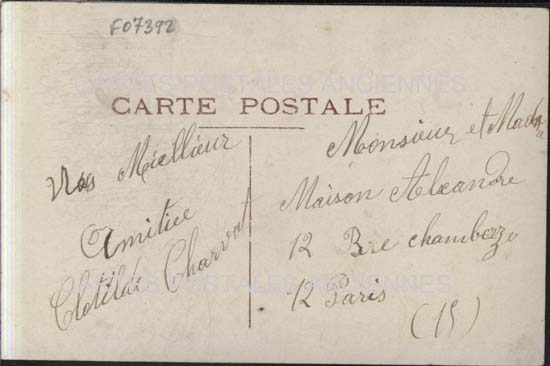 F07392
CARTES POSTALES ANCIENNES
CARTE POSTALE
Miellieur
Amitiee
Clotilde Charrot
Monsieur et Madame
Maison Alexandre
12 chamberze
12 Paris
(15)
CARTES POSTALES ANCIENNES